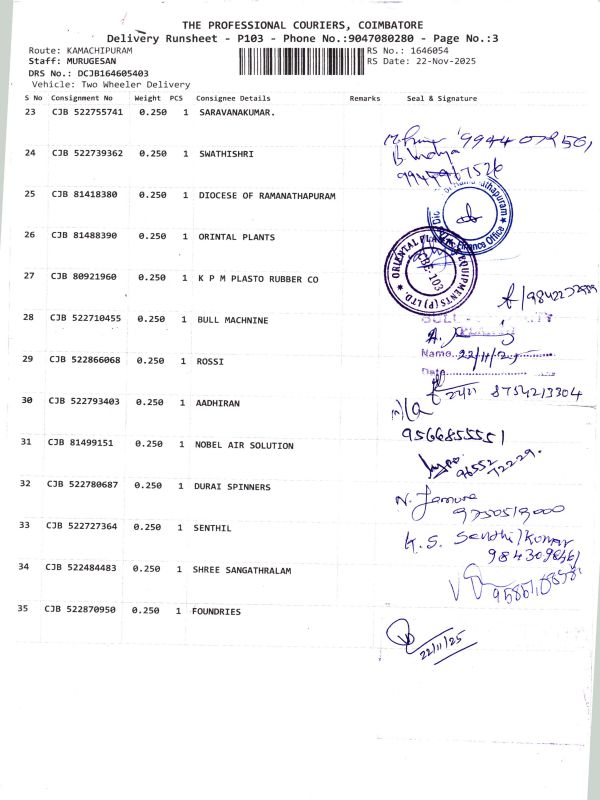 THE PROFESSIONAL COURIERS, COIMBATORE
Delivery Runsheet - P103 - Phone No.:9047080280 - Page No.:3
Route: KAMACHIPURAM RS No.: 1646054
Staff: MURUGESAN RS Date: 22-Nov-2025
DRS No.: DCJB164605403
Vehicle: Two Wheeler Delivery
S No Consignment No Weight PCS Consignee Details Remarks Seal & Signature
23 CJB 522755741 0.250 1 SARAVANAKUMAR.
24 CJB 522739362 0.250 1 SWATHISHRI
B. Vidya
25 CJB 81418380 0.250 1 DIOCESE OF RAMANATHAPURAM
Finance Office
26 CJB 81488390 0.250 1 ORINTAL PLANTS
ORIENTAL EQUIPMENTS (P) LTD.
CBE-103
27 CJB 80921960 0.250 1 K P M PLASTO RUBBER CO
28 CJB 522710455 0.250 1 BULL MACHNINE
Name. 22/11/25
Date
29 CJB 522866068 0.250 1 ROSSI
8754213304
30 CJB 522793403 0.250 1 AADHIRAN
9566855551
31 CJB 81499151 0.250 1 NOBEL AIR SOLUTION
96552 72229.
32 CJB 522780687 0.250 1 DURAI SPINNERS
N. Jamuna
9750513000
33 CJB 522727364 0.250 1 SENTHIL
K.S. Senthil Kumar
34 CJB 522484483 0.250 1 SHREE SANGATHRALAM
35 CJB 522870950 0.250 1 FOUNDRIES
22/11/25